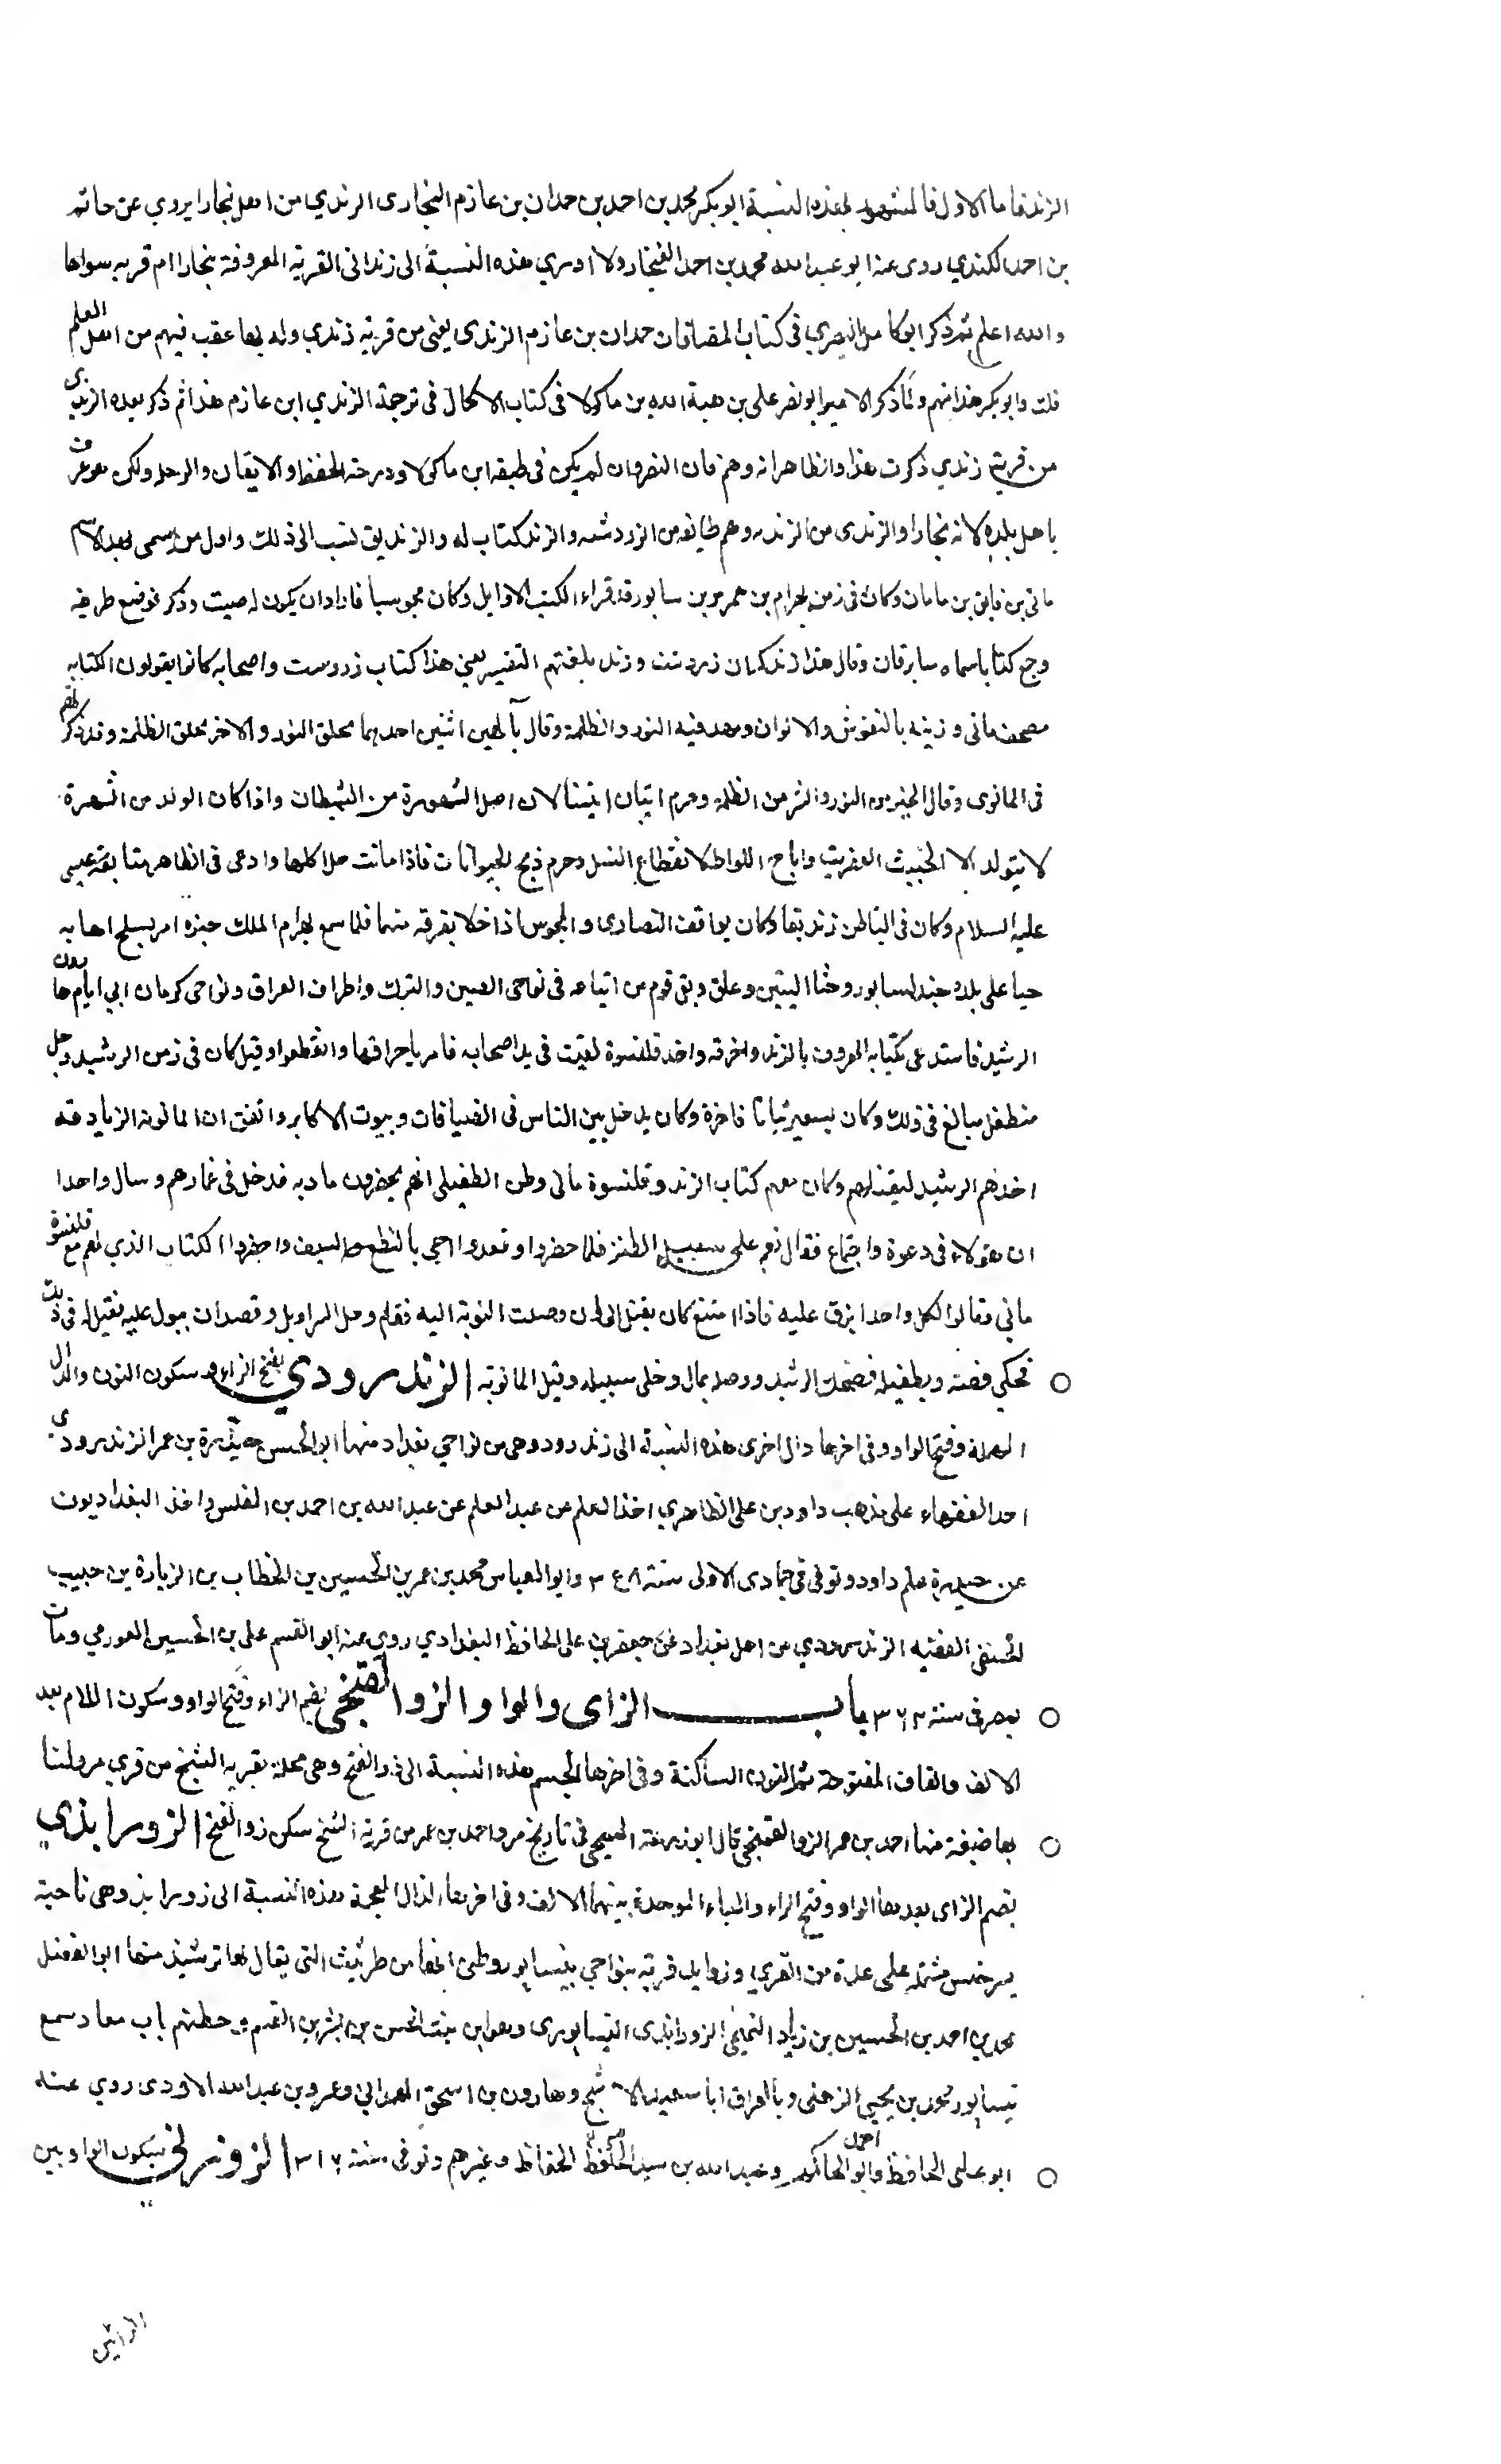 الزند فاما الاول فالمشهور بهذه النسبة ابو بكر محمد بن احمد بن حمدان بن عازم البخاري الزندي من اهل بخارا يروي عن حاتم
بن احمد الكندي روى عنه ابو عبد الله محمد بن احمد الغنجار ولا ادري هذه النسبة الى زندانى القرية المعروفة بخارا ام قريه سواها
والله اعلم ثم ذكر ابو كامل البصري في كتاب المضافات حمدان بن عازم الزندى يعنى من قرية زندي وله بها عقب فيهم من اهل العلم
قلت وابو بكر هذا منهم ولما ذكر الامير ابو نصر على بن هبة الله بن ماكولا في كتاب الاكمال فى ترجمة الزندي ابن عازم هذا ثم ذكر بعده الزندى
من قرية زندي ذكرت هذا والظاهر انه وهم فان البصري وان لم يكن فى طبقة ابن ماكولا ودرجة الحفظ والاتقان والرحلة ولكن هو اعرف
باهل بلده لانه بخارا والزندى من الزند وهم طايفة من الزردشتيه والزند كتاب له والزنديق نسب الى ذلك واول من سمى بهذا الاسم
مانى بن فاتق بن مامان وكان فى زمن بهرام بن هرمز بن سابور قد قراء الكتب الاوايل وكان مجوسيا فاراد ان يكون له صيت وذكر فوضع طريقه
وجمع كتابا سماه سابرقان وقال هذا زند كتاب زردشت وزند بلغتهم التفسير يعني هذا كتاب زردست واصحابه كانوا يقولون الكتابه
مصحف مانى وزينه بالنقوش والالوان ومهد فيه النور والظلمة وقال بآلهين اثنين احدهما يخلق النور والاخر يخلق الظلمة وقد ذكر لهم
فى المانوى وقال الخير من النور والشر من الظلمة وحرم اتيان النسا لان اصل الشهوة من الشيطان واذا كان الولد من الشهرة
لا يتولد الا الخبيث العفريت واباح اللواط لانقطاع النسل وحرم ذبح الحيوانات فاذا ماتت حل اكلها وادعى فى الظاهر متابعة عيسى
عليه السلام وكان فى الباطن زنديقا وكان يوافق النصارى والمجوس اذا خلا بفرقة منهما فلما سمع بهرام الملك خبره امر بسلخ اهابه
حيا على بلده جندیسابور وحشا التبن وعلق وبقى قوم من اتباعه فى نواحى الصين والترك واطراف العراق ونواحى كرمان الى ايام هارون
الرشيد فاستدعى بكتابه المعروف بالزند واحرقه واخذ قلنسوة لقيت فى يد اصحابه فامر باحراقها وانقطعوا وقيل كان فى زمن الرشيد رجل
متطفل مبالغ فى ذلك وكان يستعير ثيابا فاخرة وكان يدخل بين الناس فى الضيافات وبيوت الاكابر واتفق ان المانوية الزنادقة
اخذهم الرشيد ليقتلهم وكان معهم كتاب الزند وقلنسوة مانى وظن الطفيلى انهم يحضرون مادبه فدخل فى غمارهم وسال واحدا
ان هؤلاء فى دعوة واجتماع فقال نعم على سبيل الطنز فلما حضروا وقعدوا اجى بالنطع والسيف واحضروا الكتاب الذي لهم مع قلنسوة
مانى وقالوا لكل واحد ابزق عليه فاذا امتنع كان يقتل الى ان وصلت النوبة اليه فقام وحل السراويل وقصد ان يبول عليه فقيل له فى ذلك
فحكى قصته وتطفيله فضحك الرشيد ووصله بمال وخلى سبيله وقتل المانوية الزندرودي بفتح الزاء وسكون النون والدال
المهملة وفتح الواو وفى اخرها دال اخرى هذه النسبة الى زندرود وهى من نواحي بغداد منها ابو الحسن حيدرة بن عمر الزندرودى
احد الفقهاء على مذهب داود بن على الظاهري اخذ العلم عن عبد الله بن احمد بن المغلس واخذ البغداديون
عن حيدرة علم داود وتوفى فى جمادى الاولى سنة ٣٤٨ وابو العباس محمد بن عمر بن الحسين بن الخطاب بن الزيارة بن حبيب
الحنفى الفقيه الزندرودي من اهل بغداد عن جعفر بن على الحافظ البغدادي روى عنه ابو القسم على بن الحسين العورمي ومات
بمصر فى سنة ٣٦٢ باب الزاى والواو الزوالقنجى بضم الزاء وفتح الواو وسكون اللام بعد
الالف والقاف المفتوحة ثم النون الساكنة وفى اخرها الجيم هذه النسبة الى زوالقنج وهى محلة بقرية السنج من قري مرو لنا
بها ضيعة منها احمد بن عمر الزوالقنجي قال ابو زرعة السنجى فى تاريخ مرو احمد بن عمر من قرية السنج سكن زوالقنج الزورابذي
بضم الزاى بعدها الواو وفتح الراء والباء الموحدة بينهما الالف وفى اخرها الذال المعجمة هذه النسبة الى زورابذ وهى ناحية
بسرخس مشتملة على عدة من القرى وزورابذ قرية بنواحي نيسابور وظنى انها من طريثيث التى يقال لها ترشيز منها ابو الفضل
محمد بن احمد بن الحسين بن زياد التميمى الزورابذى النيسابورى وهو ابن بنت الحسن بن بشر بن القسم وخطتهم باب معاد سمع
نيسابور محمد بن يحيى الذهلى وبالعراق ابا سعيد الاشج وهارون بن اسحق الهمدانى وعمرو بن عبد الله الاودى روى عنه
ابو على الحافظ وابو احمد الحاكم وعبد الله بن سعد الحافظ الحفاظ وغيرهم وتوفى سنة ٣١٦ الزوزنى بسكون الواو بين
الزائين